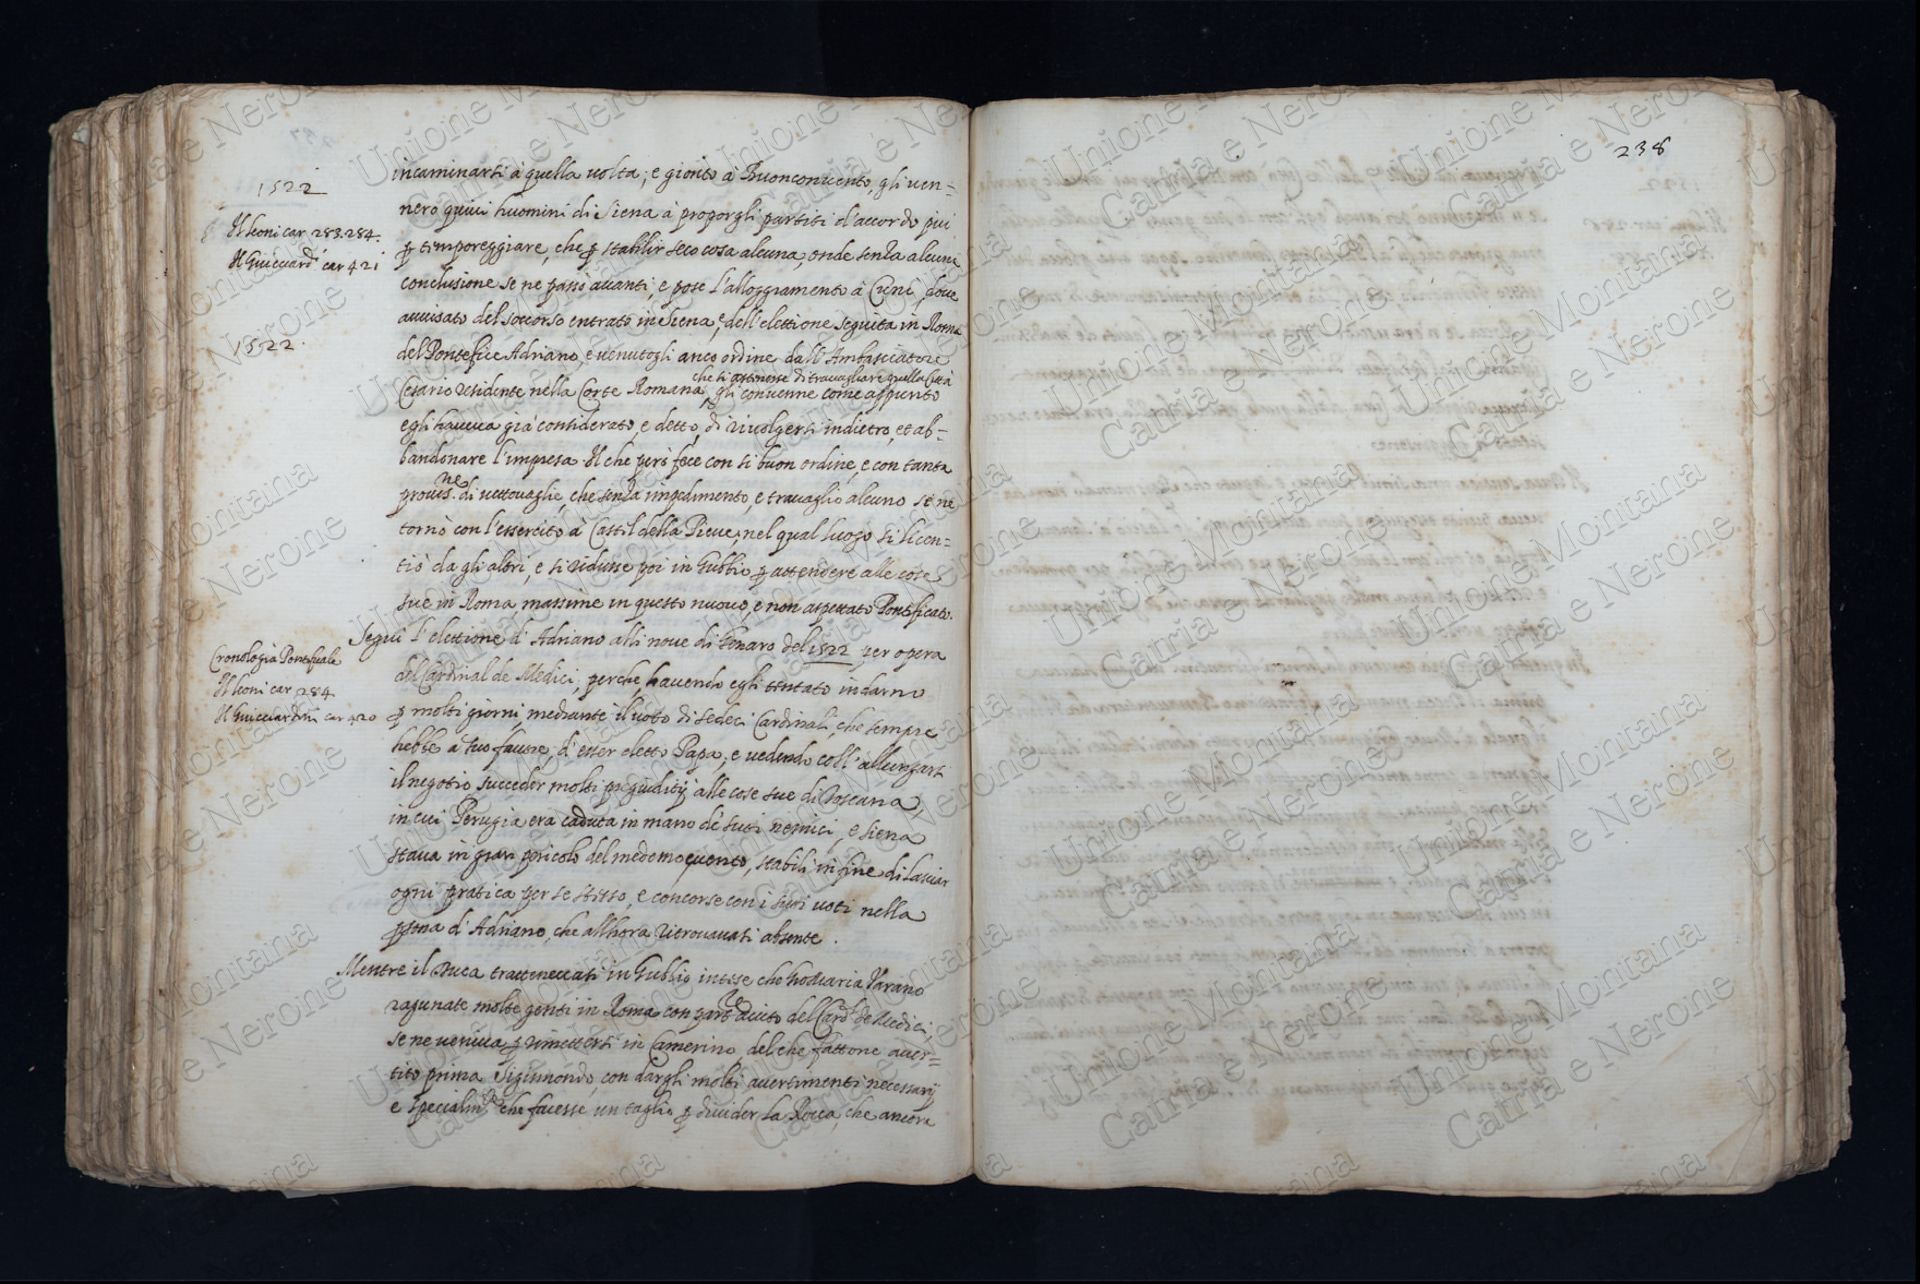 1522
Il Leoni car. 283.284.
Il Guicciard. car 421
1522.
incaminarsi à quella volta; e gionto à Buonconvento, gli ven=
nero quivi huomini di Siena à proporgli partiti d'accordo più
p temporeggiare, che p stabilir seco cosa alcuna, onde senza alcuna
conclusione se ne passò avanti, e pose l'alloggiamento à Cuni, dove
avvisato del soccorso entrato in Siena, e dell'elettione seguita in Roma
del Pontefice Adriano, e venutogli anco ordine dall'Ambasciatore
che si astenesse di travagliare quella Città
Cesario residente nella Corte Romana, gli convenne come appunto
egli haveva già considerato, e detto, di rivolgersi indietro, et ab=
bandonare l'impresa. Il che però fece con si buon ordine, e con tanta
provis.ne di vettovaglie, che senza impedimento, e travaglio alcuno se ne
tornò con l'essercito à Castil della Pieve, nel qual luogo si licen=
tiò da gli altri, e si ridusse poi in Gubbio p attendere alle cose
sue in Roma, massime in questo nuovo, e non aspettato Pontificato.
Cronologia Pontificale
Il Leoni car. 284
Il Guicciardini car 420
Seguì l'elettione d'Adriano alli nove di Genaro del 1522 per opera
del Cardinal de Medici, perche, havendo egli tentato indarno
p molti giorni, mediante il voto di sedeci Cardinali, che sempre
hebbe à suo favore, d'esser eletto Papa, e vedendo coll'allungarsi
il negotio succeder molti pregiuditij alle cose sue di Toscana,
in cui Perugia era caduta in mano de suoi nemici, e Siena
stava in gran pericolo del medemo evento, stabilì in fine di lasciar
ogni pratica per se stesso, e concorse con i suoi voti nella
psona d'Adriano, che allhora ritrovavasi absente.
Mentre il Duca trattenevasi in Gubbio intese che Gio Maria Varano
ragunate molte genti in Roma con part.re aiuto del Card. de Medici,
se ne veniva p rimettersi in Camerino, del che fattone aver=
tito prima Sigismondo, con dargli molti avertimenti necessarij
e specialm.te che facesse un taglio p divider la Rocca, che ancora
238